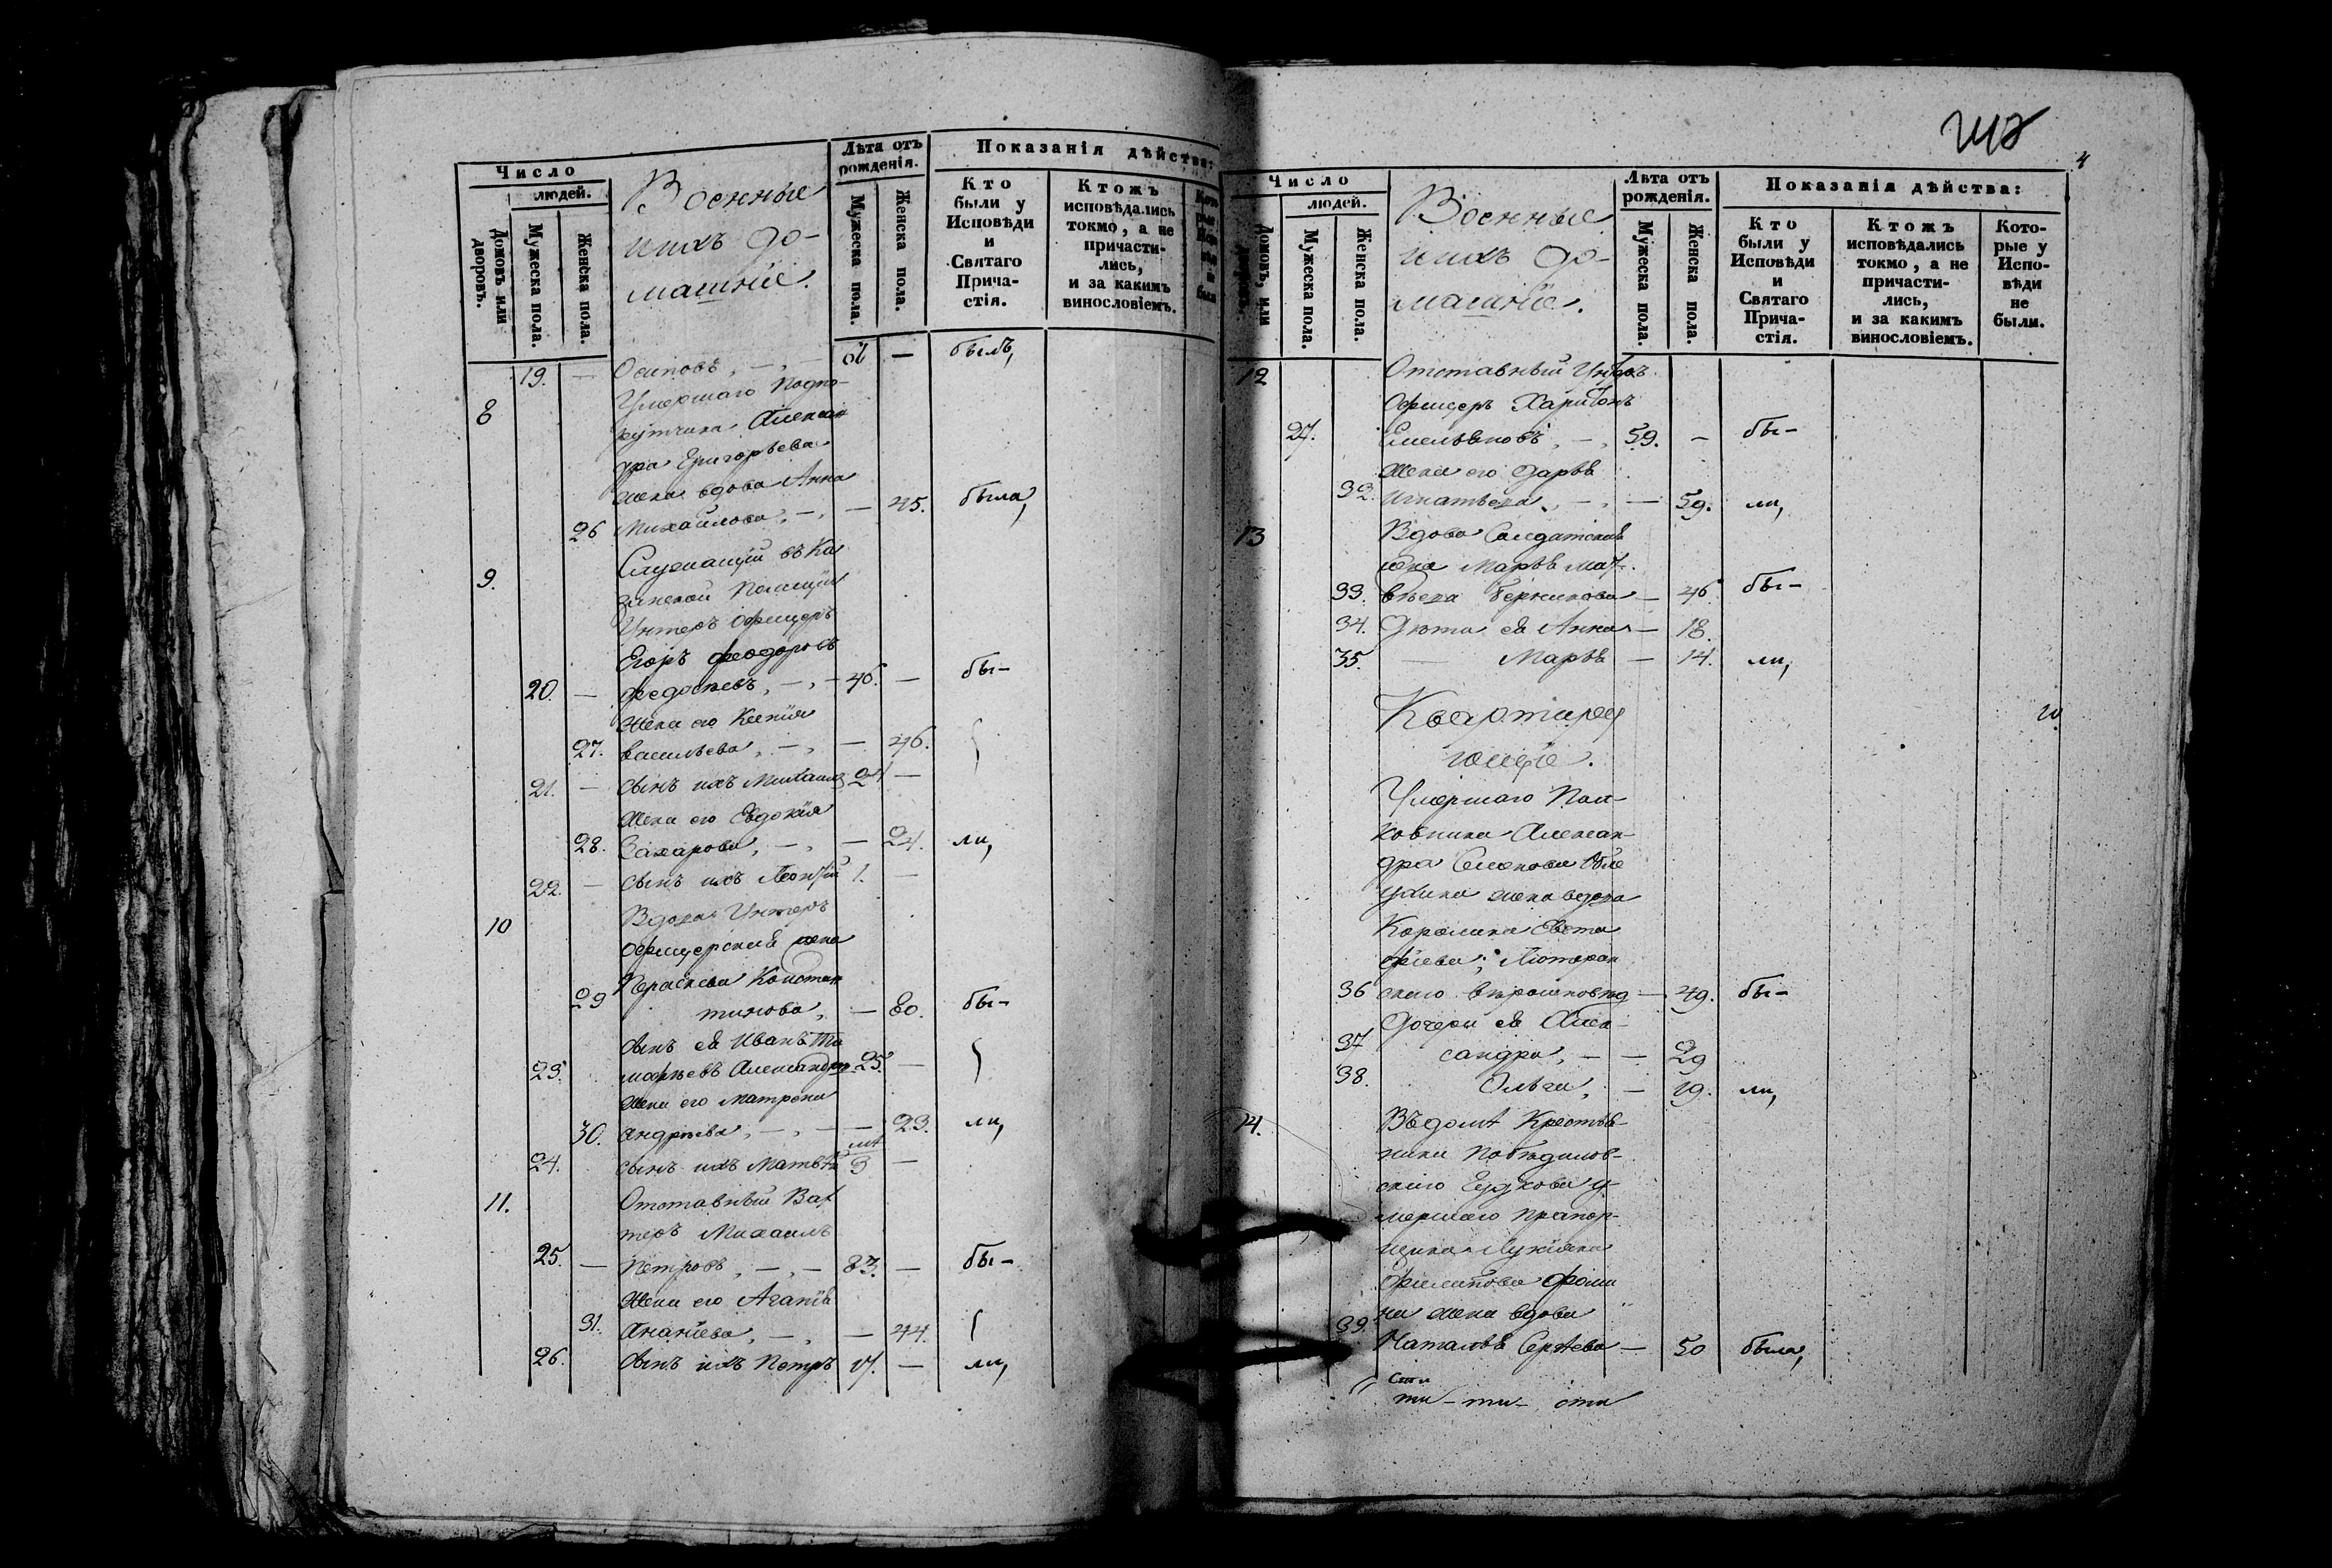 Число
людей.
Домовъ или дворовъ.
Мужеска пола.
Женска пола.
Военные
и ихъ до-
машніе.
Лѣта отъ рожденія.
Мужеска пола.
Женска пола.
Показанія дѣйства:
Кто были у Исповѣди и Святаго Прича-стія.
Ктожъ исповѣдались токмо, а не причасти-лись, и за какимъ винословіемъ.
19. — Осиповъ, —, — — былъ,
8 Умершаго Подпо-
ручика Алексан
дра Григорьева
жена вдова Анна
26 Михайлова, —, — 45. была,
9. Служащій въ Ка
занской Полиціи
Унтеръ Офицеръ
Егоръ Феодоровъ
20. — Федосѣевъ, —, — 46. — бы-
Жена его Ксенія
27. Васильева, —, — 46.
21. — Сынъ ихъ Михаилъ 24 —
Жена его Евдокія
28. Захарова, —, — 24. ли,
22. — Сынъ ихъ Леонтій 1. —
10 Вдова Унтеръ
Офицерская жена
29 Параскева Констан
тинова, — 80. бы-
Сынъ ея Иванъ Ти
23. мофѣевъ Александровъ 25. —
Жена его Матрона
30. Андреева, —, — — 23. ли,
24. сынъ ихъ Матвѣй 3 —
11. Отставный Вах
теръ Михаилъ
25. — Петровъ, —, — 83. — бы-
Жена его Агапія
31. Ананіева, —, — 44.
26. Сынъ ихъ Петръ 17. — ли,
4
Число
людей.
Домовъ, или дворовъ.
Мужеска пола.
Женска пола.
Военные
и ихъ до-
машніе.
Лѣта отъ рожденія.
Мужеска пола.
Женска пола.
Показанія дѣйства:
Кто были у Исповѣди и Святаго Прича-стія.
Ктожъ исповѣдались токмо, а не причасти-лись, и за какимъ винословіемъ.
Кото-рые у Испо-вѣди не были.
12 Отставный Унтеръ
Офицеръ Харитонъ
27. Емельяновъ, —, 59. — бы-
Жена его Дарья
32. Игнатьева, —, — 59. ли,
13 Вдова Солдатская
жена Марья Мат-
33. вѣева — 46. бы-
34. Дѣти ея Анна — 18.
35. — Марья — 14. ли,
Квартирую
ющіе.
Умершаго Пол-
ковника Алексан-
дра Семенова
жена вдова
Каролина Еста
фіева; Лютеран
36 скаго вѣроисповѣд — 49. бы-
Дочери ея Алек-
37 сандра, — — 29
38. Ольга, — 19. ли,
14. Вѣдомст Крестья-
нина
умершаго Прапор-
щика Лукіана
Филипова Фоми
на жена вдова
39. Наталья Сергѣева — 50 была,
сти
ти - ти - сти